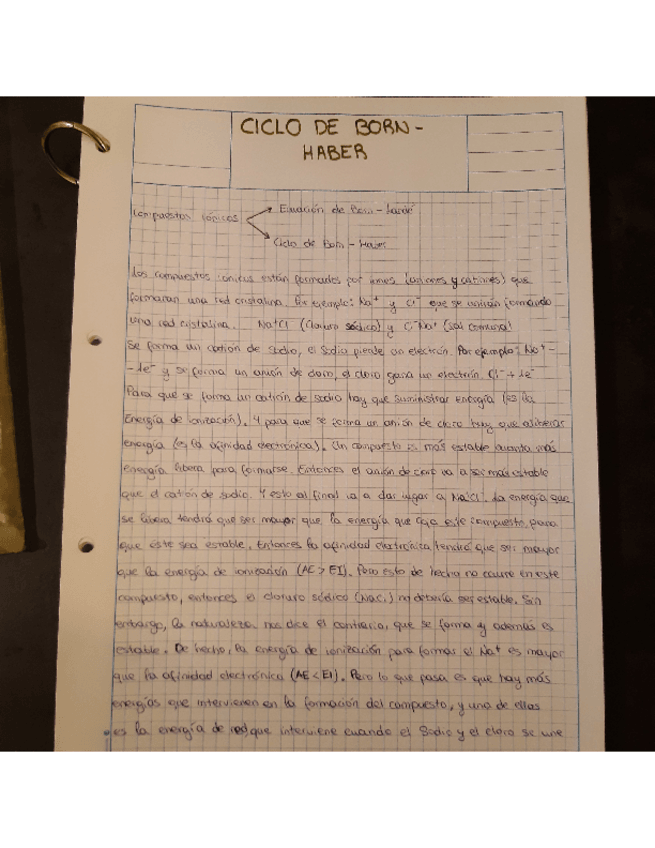 CICLO DE BORN-
HABER
Compuestos iónicos
Ecuación de Born-Landé
Ciclo de Born-Haber
Los compuestos iónicos están formados por iones (aniones y cationes) que
formaran una red cristalina. Por ejemplo: Na⁺ y Cl⁻ que se unirán formando
una red cristalina. Na⁺Cl (Cloruro sódico) y Cl⁻Na⁺ (sal común)
Se forma un catión de sodio, el sodio pierde un electrón. Por ejemplo: Na⁺-
-1e⁻ y se forma un anión de cloro, el cloro gana un electrón. Cl⁻+1e⁻
Para que se forma un catión de sodio hay que suministrar energía (es la
Energía de ionización). Y para que se forma un anión de cloro hay que liberar
energía (es la afinidad electrónica). Un compuesto es más estable cuanta más
energía libera para formarse. Entonces el anión de cloro va a ser más estable
que el catión de sodio. Y esto al final va a dar lugar a NaCl. La energía que
se libera tendrá que ser mayor que la energía que coja este compuesto para
que este sea estable. Entonces la afinidad electrónica tendrá que ser mayor
que la energía de ionización (AE>EI). Pero esto de hecho no ocurre en este
compuesto, entonces el cloruro sódico (NaCl) no debería ser estable. Sin
embargo, la naturaleza nos dice el contrario, que se forma y además es
estable. De hecho, la energía de ionización para formar el Na⁺ es mayor
que la afinidad electrónica (AE<EI). Pero lo que pasa es que hay más
energías que intervienen en la formación del compuesto, y una de ellas
es la energía de red que interviene cuando el Sodio y el cloro se une